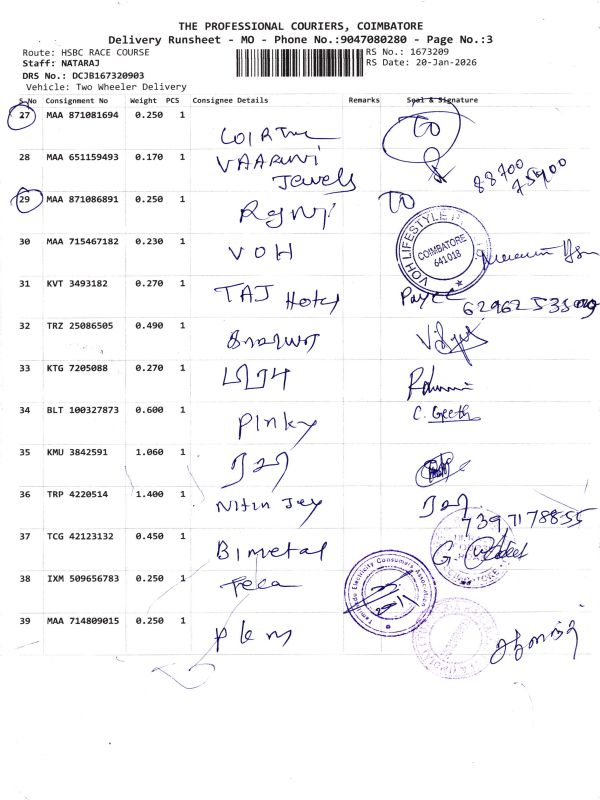 THE PROFESSIONAL COURIERS, COIMBATORE
Delivery Runsheet - MO - Phone No.:9047080280 - Page No.:3
Route: HSBC RACE COURSE RS No.: 1673209
Staff: NATARAJ RS Date: 20-Jan-2026
DRS No.: DCJB167320903
Vehicle: Two Wheeler Delivery
S.No Consignment No Weight PCS Consignee Details Remarks Seal & Signature
27 MAA 871081694 0.250 1 TO
28 MAA 651159493 0.170 1 VAARUNI
Jewels 88700
75900
29 MAA 871086891 0.250 1 TO
30 MAA 715467182 0.230 1 VOH VOH LIFESTYLE COIMBATORE 641018
31 KVT 3493182 0.270 1 TAJ Hotel
32 TRZ 25086505 0.490 1
33 KTG 7205088 0.270 1
34 BLT 100327873 0.600 1 Pinky C. Geeth
35 KMU 3842591 1.060 1
36 TRP 4220514 1.400 1 Nitin Jey 7397178855
37 TCG 42123132 0.450 1 Bimetal G.
38 IXM 509656783 0.250 1 Feca Tamilnadu Electricity Consumers Association
39 MAA 714809015 0.250 1